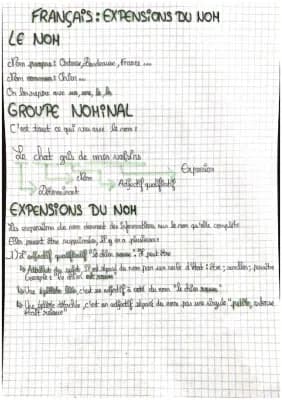 FRANÇAIS : EXPENSIONS DU NOM
LE NOM
Nom propre : France ...
Nom commun : Chien ...
On le repère avec un, une, le, la
GROUPE NOMINAL
C'est tout ce qui va avec le nom :
Le chat gris de mes voisins
Nom
Expansion
Déterminant
Adjectif qualificatif
EXPENSIONS DU NOM
Les expansions du nom donnent des informations sur le nom qu'elle complète
Elles peuvent être supprimées, il y en a plusieurs :
1) L'adjectif qualificatif "le chien". Il peut être
Attribut du sujet, il est séparé du nom par un verbe d'état : être ; sembler ; paraître
Exemple : "Le chien est
Une épithète liée, c'est un adjectif à côté du nom "le chien
Une épithète détachée, c'est un adjectif séparé du nom par une virgule
était